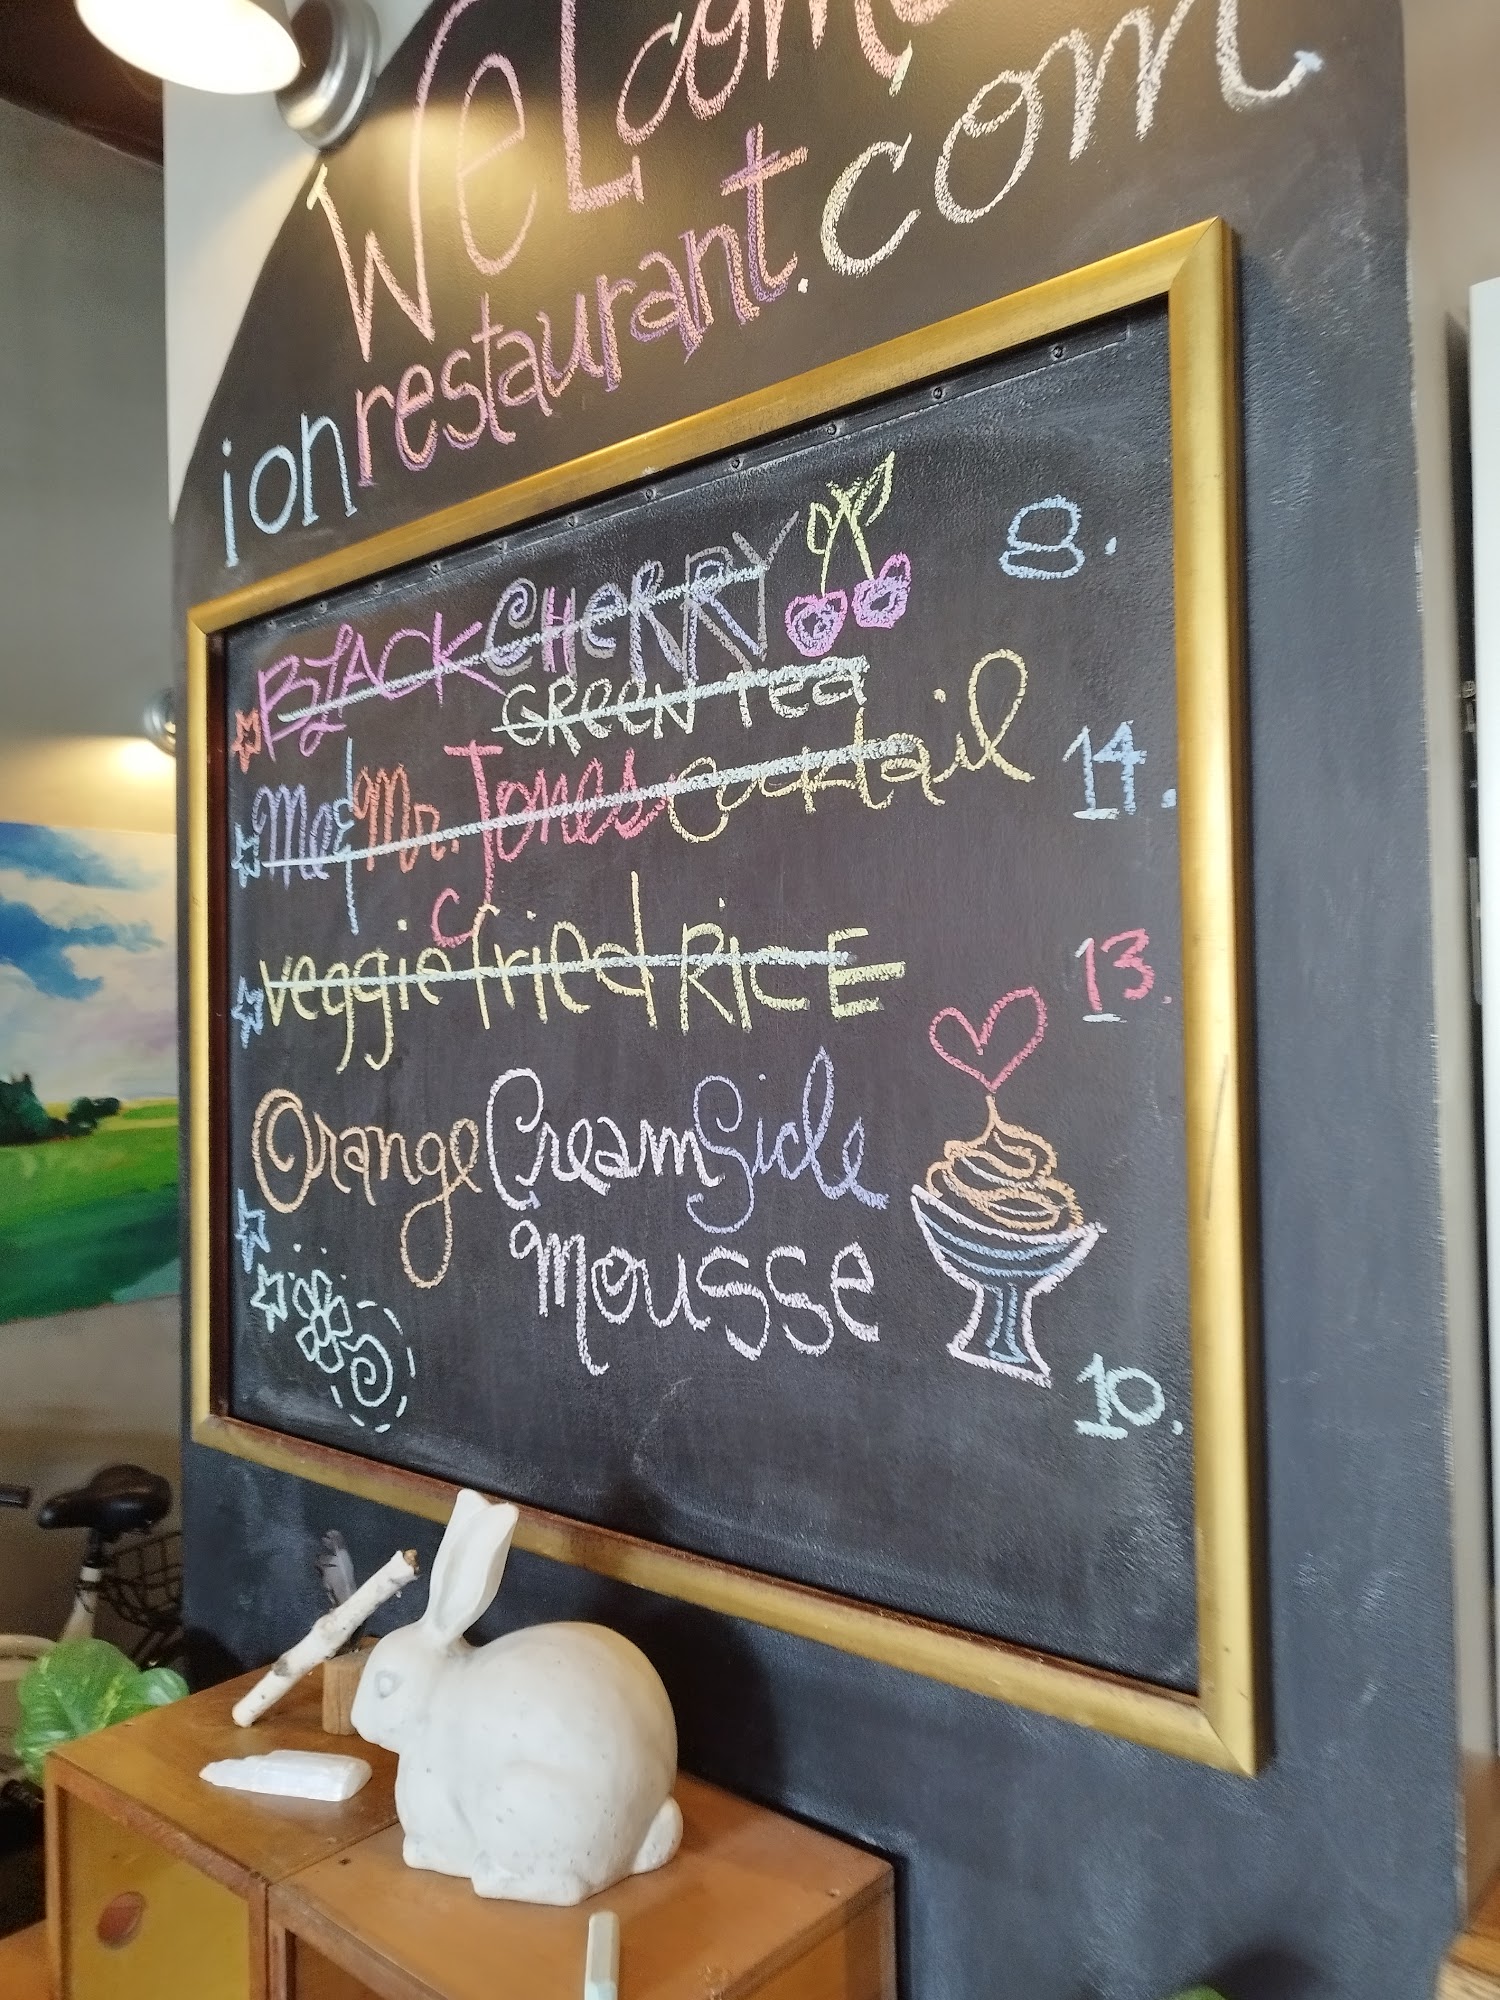 Welcome
ionrestaurant.com
BLACK CHERRY 8.
GREEN Tea
Me & Mr. Jones Cocktail 14.
veggie fried RiCE 13.
Orange CreamSicle
mousse
10.